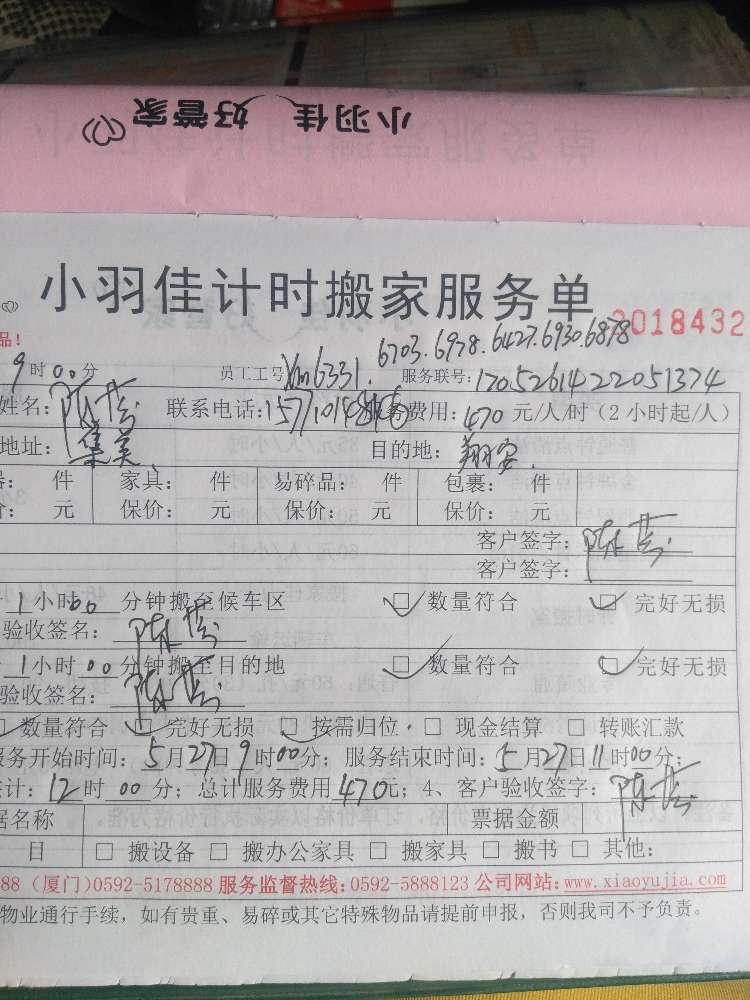 小羽佳 好管家
小羽佳计时搬家服务单
2018432
品!
6703.6978.6427.6930.6878
9时00分 员工工号xm6331. 服务联号:1705261422051374
姓名:陈 联系电话: 务费用:470元/人/时(2小时起/人)
地址:集美 目的地:翔安.
件 家具: 件 易碎品: 件 包裹: 件
元 保价: 元 保价: 元 保价: 元
客户签字:陈
客户签字:
1小时00分钟搬至候车区 数量符合 完好无损
验收签名:陈
1小时00分钟搬至目的地 □数量符合 完好无损
验收签名:陈
数量符合 完好无损 按需归位 □ 现金结算 □ 转账汇款
服务开始时间:5月27日9时00分;服务结束时间:5月27日11时00分;
共计:12时00分;总计服务费用470元;4、客户验收签字:陈
据名称 票据金额
目 □ 搬设备 □ 搬办公家具 □ 搬家具 □ 搬书 □ 其他:
88(厦门)0592-5178888 服务监督热线:0592-5888123 公司网站:www.xiaoyujia.com
物业通行手续,如有贵重、易碎或其它特殊物品请提前申报,否则我司不予负责。